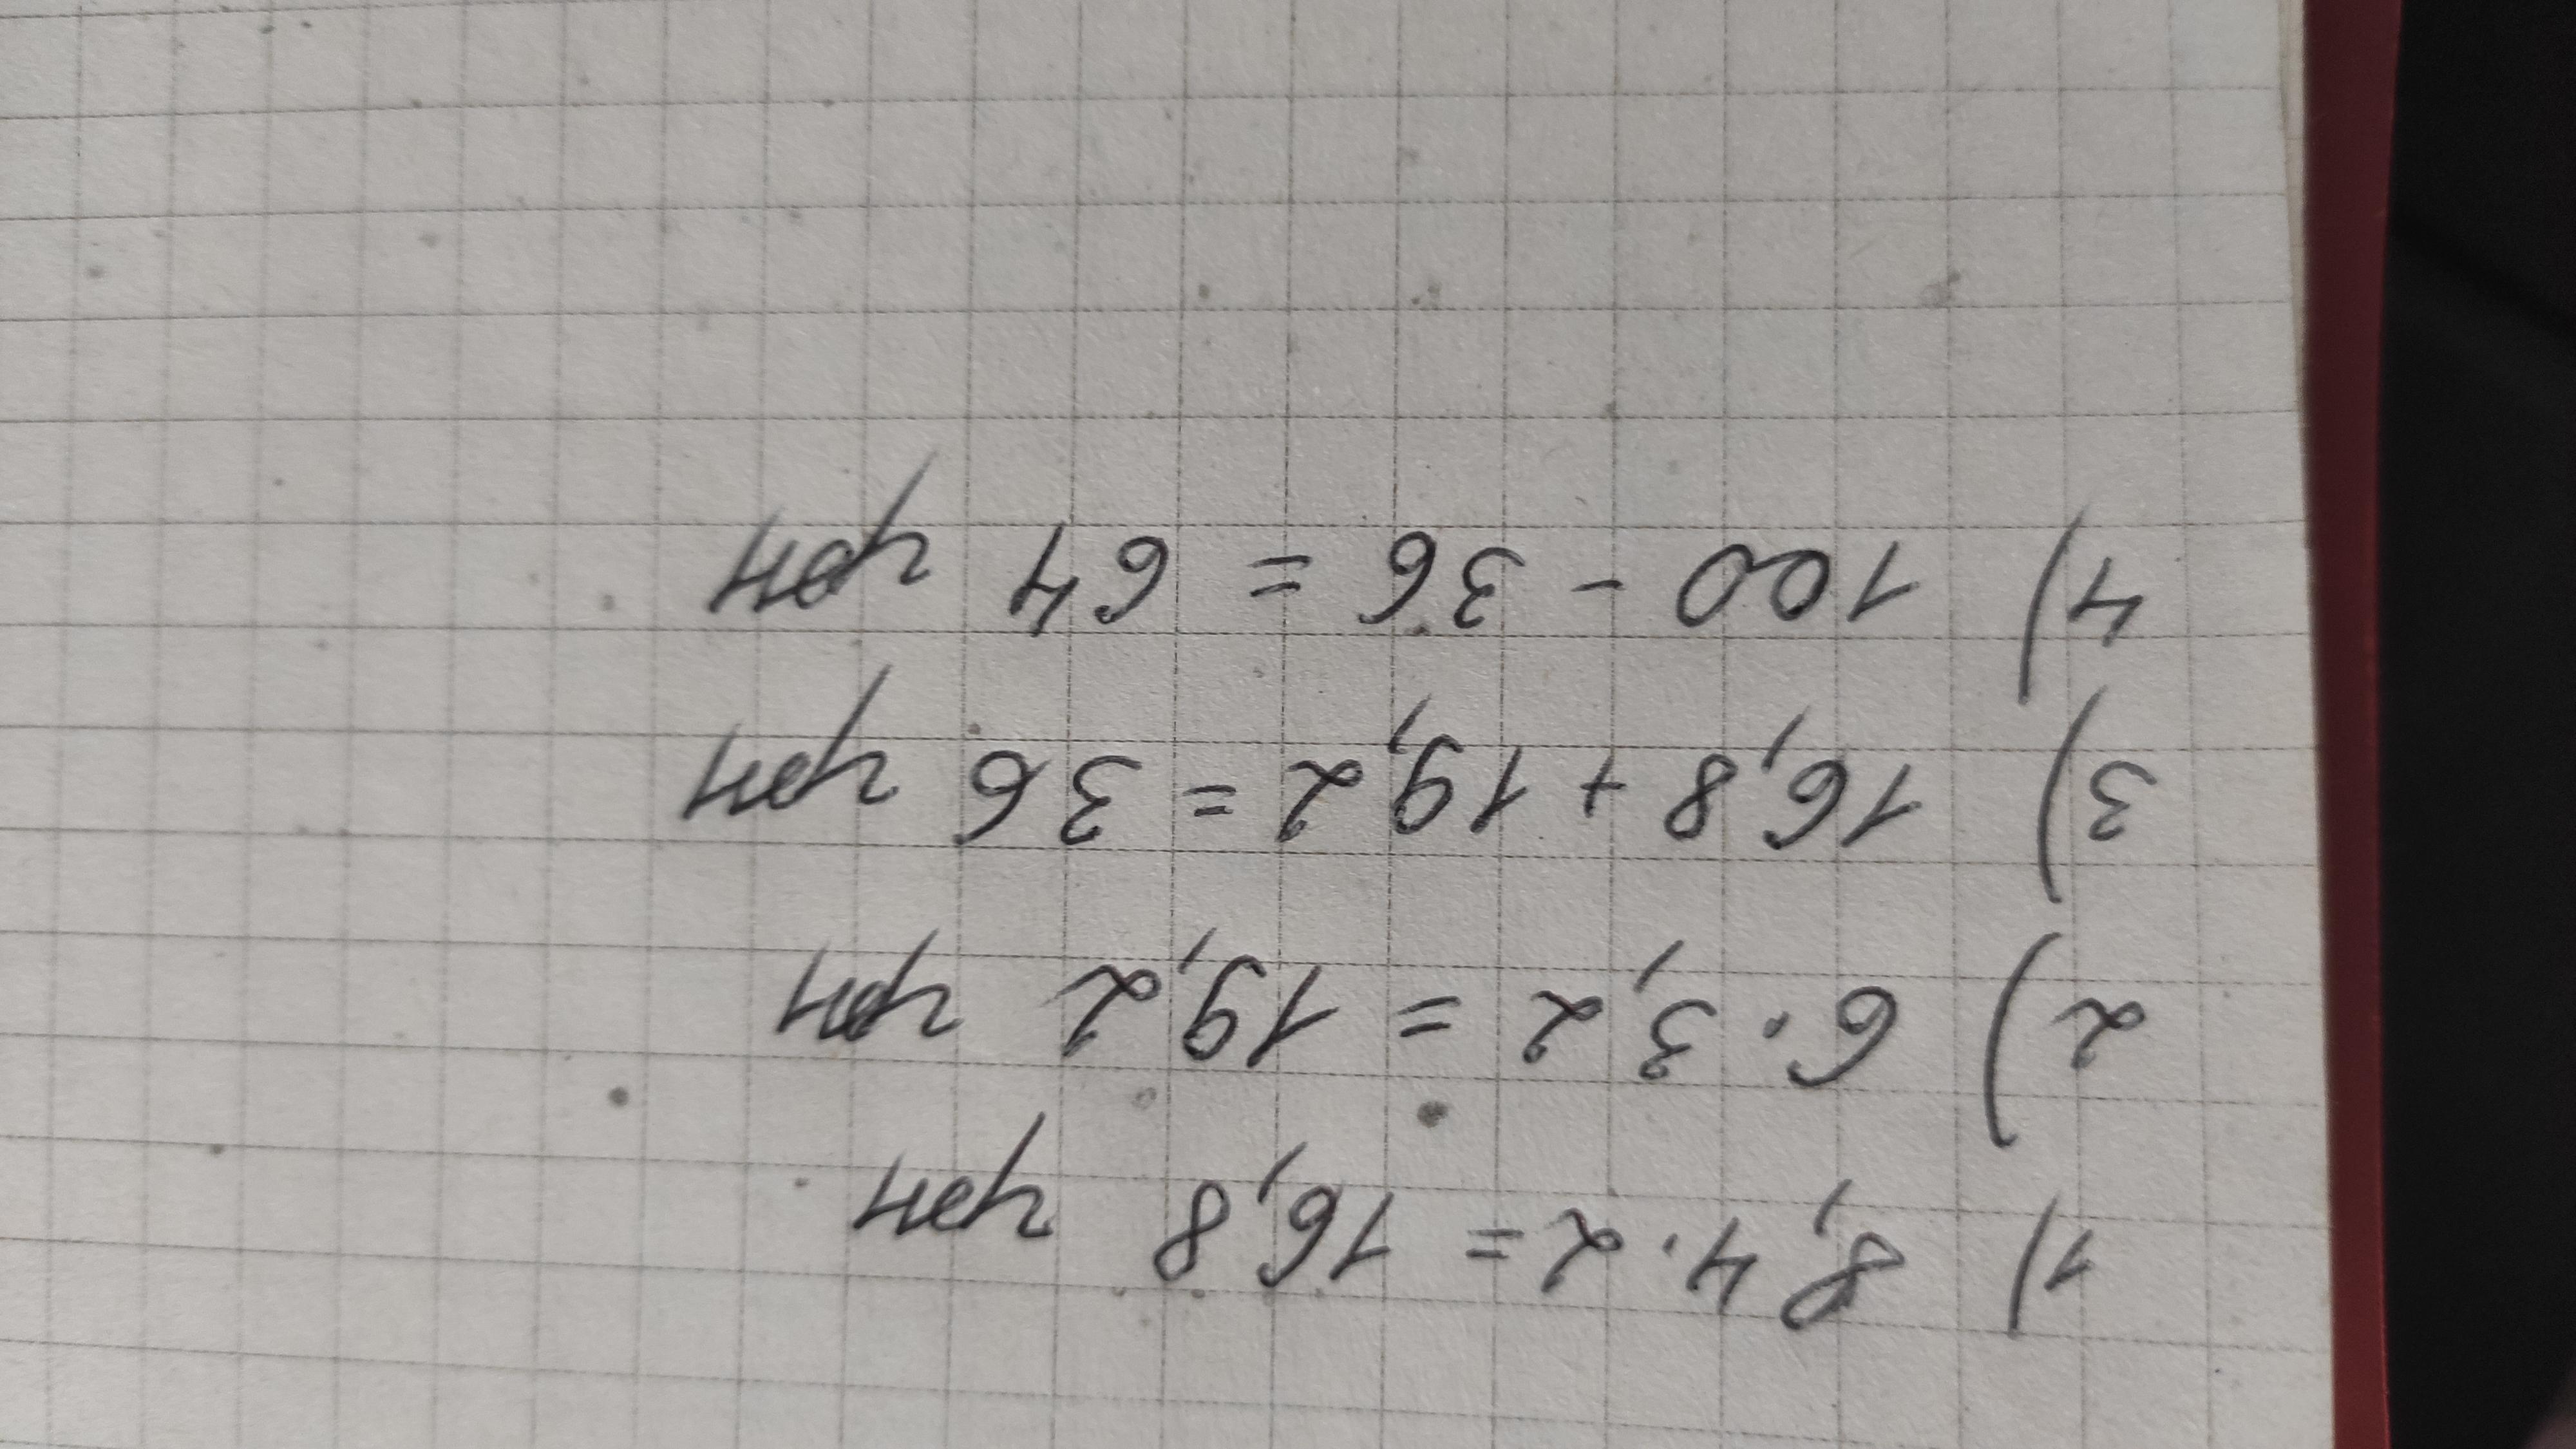 1) 8,4 · 2 = 16,8 грн
2) 6 · 3,2 = 19,2 грн
3) 16,8 + 19,2 = 36 грн
4) 100 - 36 = 64 грн